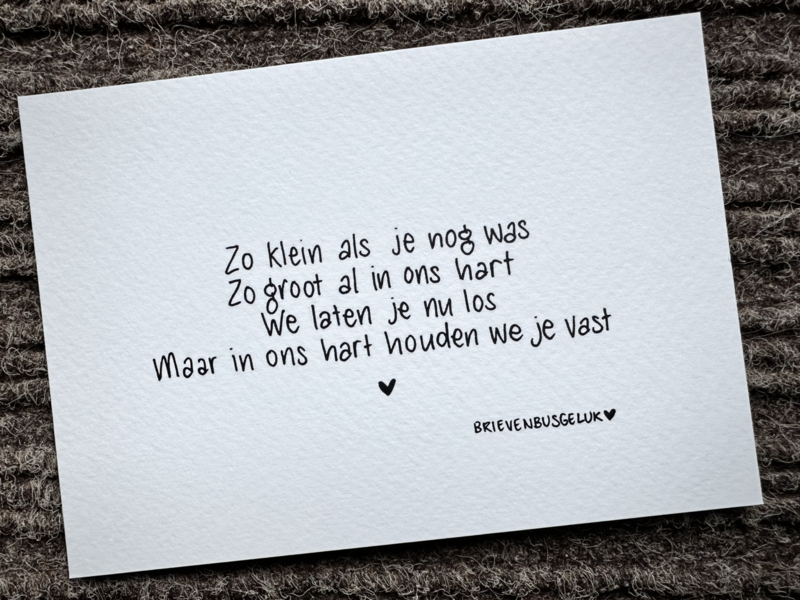 Zo klein als je nog was
Zo groot al in ons hart
We laten je nu los
Maar in ons hart houden we je vast
BRIEVENBUSGELUK